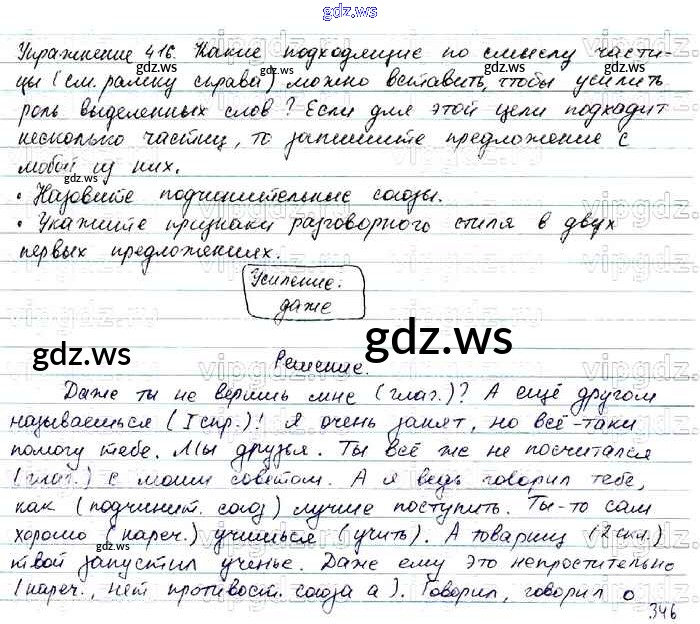 gdz.ws
Упражнение 416. Какие подходящие по смыслу части-
gdz.ws gdz.ws
цы (см. рамку справа) можно вставить, чтобы усилить
роль выделенных слов? Если для этой цели подходит
gdz.ws gdz.ws
несколько частиц, то запишите предложение с
любой из них.
gdz.ws
• Назовите подчинительные союзы.
• Укажите признаки разговорного стиля в двух
первых предложениях.
gdz.ws
Усиление:
даже
gdz.ws gdz.ws
Решение.
Даже ты не веришь мне (глаг.)? А ещё другом
называешься (I спр.)! Я очень занят, но всё-таки
помогу тебе. Мы друзья. Ты всё же не посчитался
(глаг.) с моим советом. А я ведь говорил тебе,
как (подчинит. союз) лучше поступить. Ты-то сам
хорошо (нареч.) учишься (учить). А товарищ (2 скл.)
твой запустил ученье. Даже ему это непростительно
(нареч., нет противост. союза а). Говорил, говорил о
346